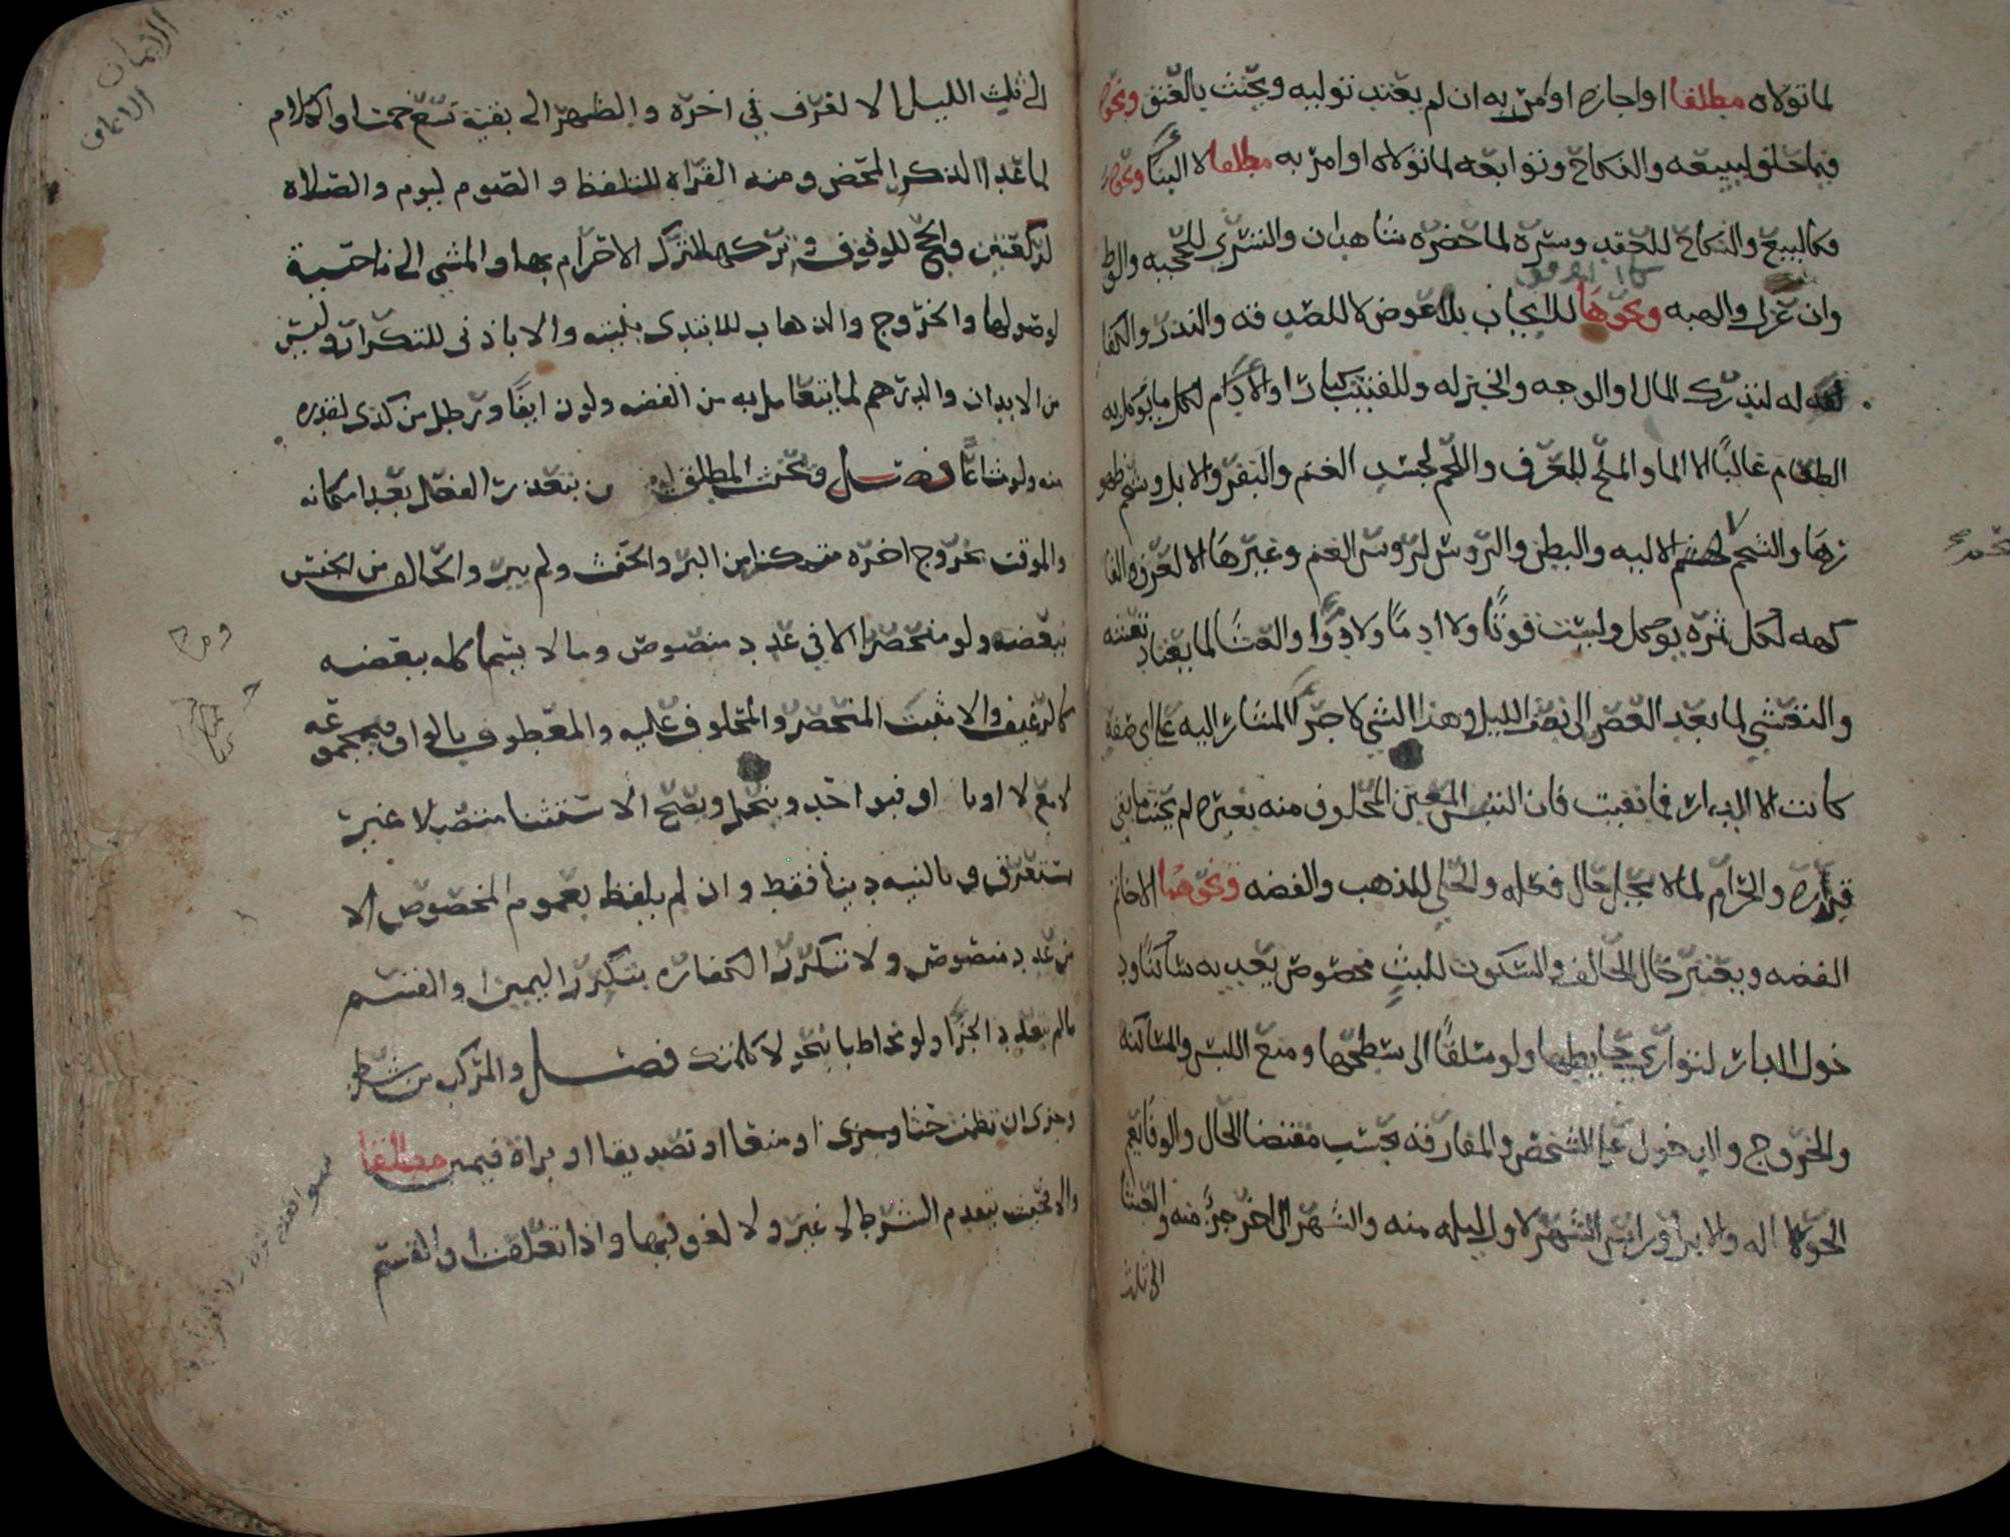 لما تولاه مطلقا او اجازه او امر به ان لم يعتد توليه ويحنث بالعتق ونحوه
فيما حلف ليبيعه والنكاح وتوابعه لما تولاه او امر به مطلقا لا البنا ونحوه
فكالبيع والنكاح للعقد وسره لما حضره شاهدان والتسري للحجبه والوطي
وان عزل والهبه ونحوها للايجاب بلا عوض لا للصدقه والنذر والكفا
له لتدرك المال والوجه والخبز له وللفتيت كبارا والادام لكل ما يوكل به
الطعام غالبًا الا الما والملح للعرف واللحم لجسد الغنم والبقر والابل وشحم ظهو
رها والشحم لشحم الاليه والبطن والروس لروس الغنم وغيرها الا لعرف والفا
كهه لكل ثمره يوكل وليست قوتًا ولا ادمًا ولا دوًا والعشا لما يعتاد تعشيه
والتعشي لما بعد العصر الى نصف الليل وهذا الشي لاجزا المشار اليه على اي صفه
كانت الا الدار فما بقيت فان التبس المعين المحلوف منه بغيره لم يحنث ما بقي
قدره والحرام لما لا يحل حال فعله والحلي للذهب والفضه ونحوهما الا خاتم
الفضه ويعتبر حال الحالف والسكون للبثٍ مخصوص يعد به ساكنًا ود
خول الدار لتواري حايطها ولو متسلقًا الى سطحها ومنع اللبس والمساكنه
والخروج والدخول على الشخص والمفارقه بحسب مقتضا الحال والوفا يعم
الحواله والابرا وراس الشهر لاول ليله منه والشهر الى اخر جزءٍ منه والعشا
الى ثلث
الايمان
الايمان
الى ثلث الليل الا لعرف في اخره والظهر الى بقية تسع خمسا والكلام
لما عدا الذكر المحض ومنه القراه للتلفظ والصوم ليوم والصلاه
لركعتين والحج للوقوف وتركها لترك الاحرام بها والمشي الى ناحية
لوصولها والخروج والذهاب للابتدى بنيته والا باذني للتكرار وليس
من الايدان والدرهم لما يتعامل به من الفضه ولو زايفًا ورطل من كذى لقدره
منه ولو مشاعًا فصل ويحنث المطلق بتعذر الفعل بعد امكانه
والموقت بخروج اخره متمكنا من البر والحنث ولم يبر والحالف من الجنس
ببعضه ولو منحصرا الا في عدد منصوص وما لا يسما كله ببعضه
كالرغيف والا مثبت المنحصر والمحلوف عليه والمعطوف بالواو فبمجموعه
لا مع لا او با او فبواحد وينحل ويصح الاستثنا متصلا غير
مستغرق وبالنيه دينا فقط وان لم يلفظ بعموم المخصوص الا
من عدد منصوص ولا تتكرر الكفاره بتكرر اليمين او القسم
ما لم يتعدد الجزا ولو مخاطبا بنحو لا كلمتك فصل والمركب من شرط
وجزى ان تضمنت حثا او منعا او تصديقا او براه فيمين مطلقا
والا فحيث يتقدم الشرط لا غير ولا لغو فيها واذا تعلقت او القسم